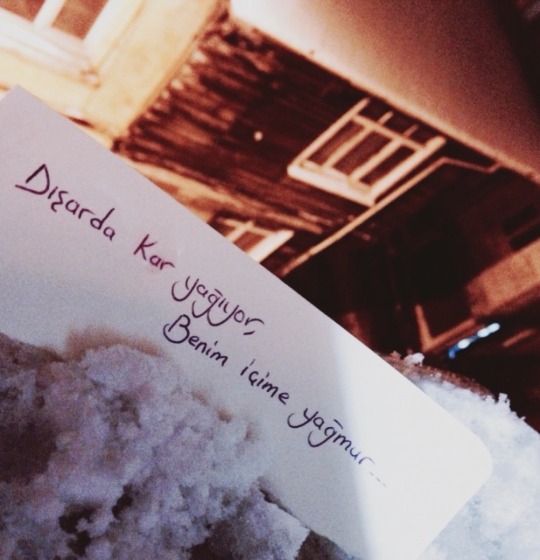 Dışarda Kar yağıyor,
Benim içime yağmur...